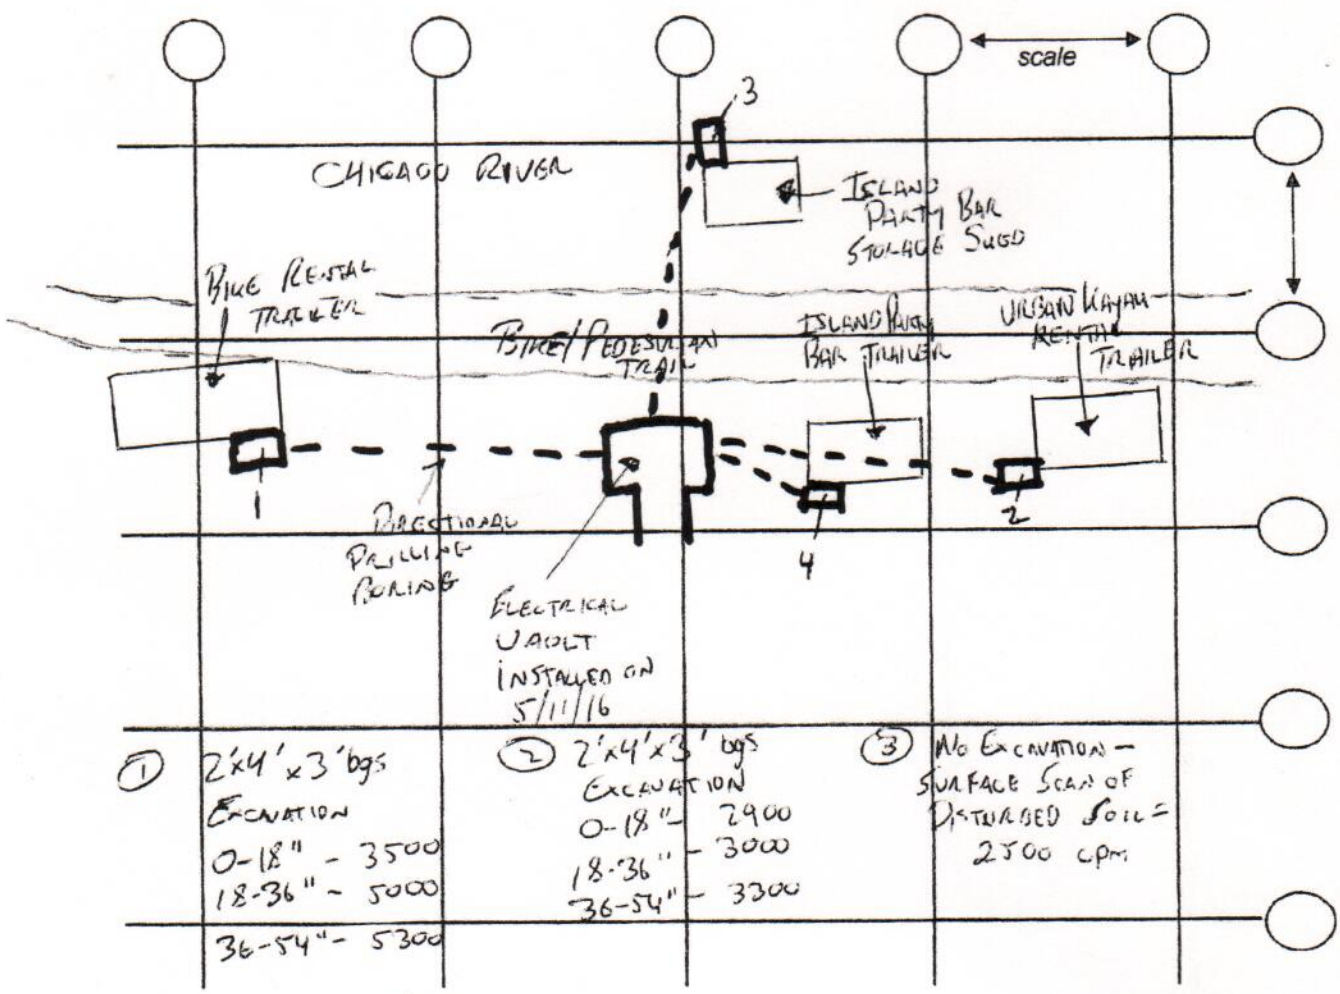 scale
3
CHICAGO RIVER
ISLAND
PARTY BAR
STORAGE SHED
BIKE RENTAL
TRAILER
BIKE/PEDESTRIAN
TRAIL
ISLAND PARTY
BAR TRAILER
URBAN KAYAK
RENTAL
TRAILER
1
4
2
DIRECTIONAL
DRILLING
BORING
ELECTRICAL
VAULT
INSTALLED ON
5/11/16
① 2'x4'x3' bgs
EXCAVATION
0-18" - 3500
18-36" - 5000
36-54" - 5300
② 2'x4'x3' bgs
EXCAVATION
0-18" - 2900
18-36" - 3000
36-54" - 3300
③ NO EXCAVATION -
SURFACE SCAN OF
DISTURBED SOIL =
2500 cpm